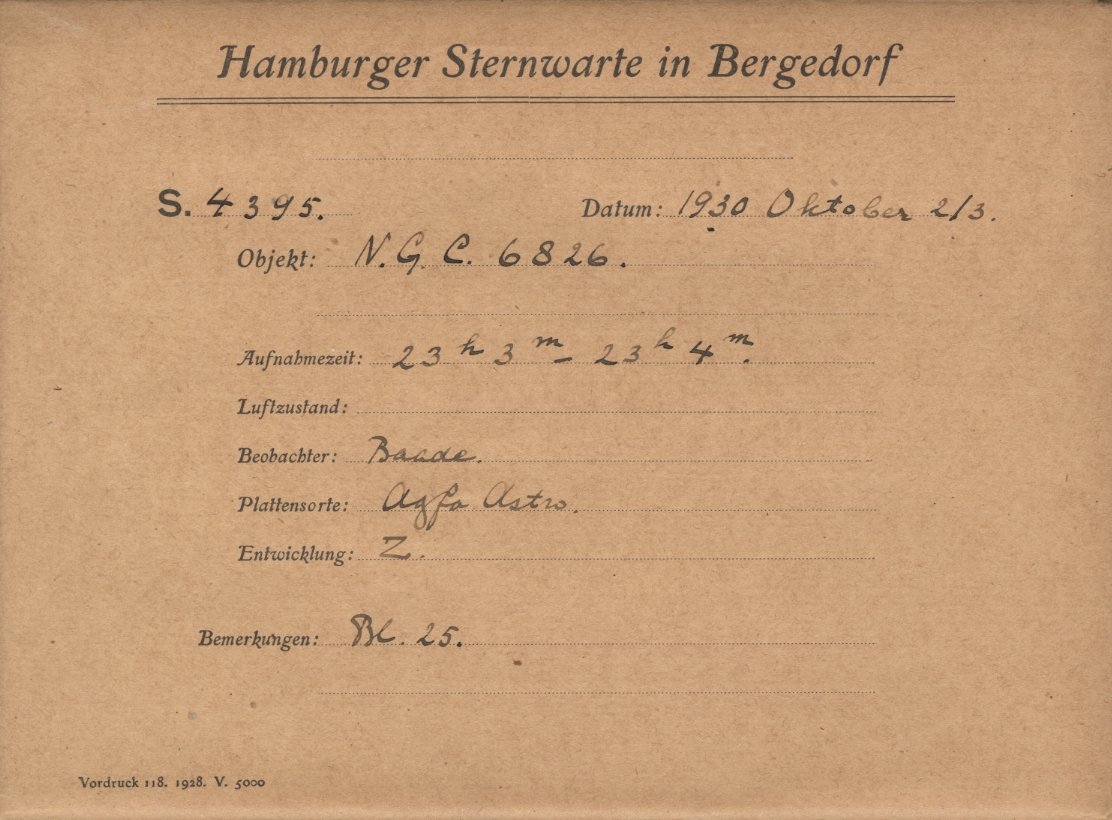 Hamburger Sternwarte in Bergedorf
S. 4395. Datum: 1930 Oktober 2/3.
Objekt: N. G. C. 6826.
Aufnahmezeit: 23 h 3 m - 23 h 4 m.
Luftzustand:
Beobachter: Baade.
Plattensorte: Agfa Astro.
Entwicklung: Z.
Bemerkungen: Bl. 25.
Vordruck 118. 1928. V. 5000